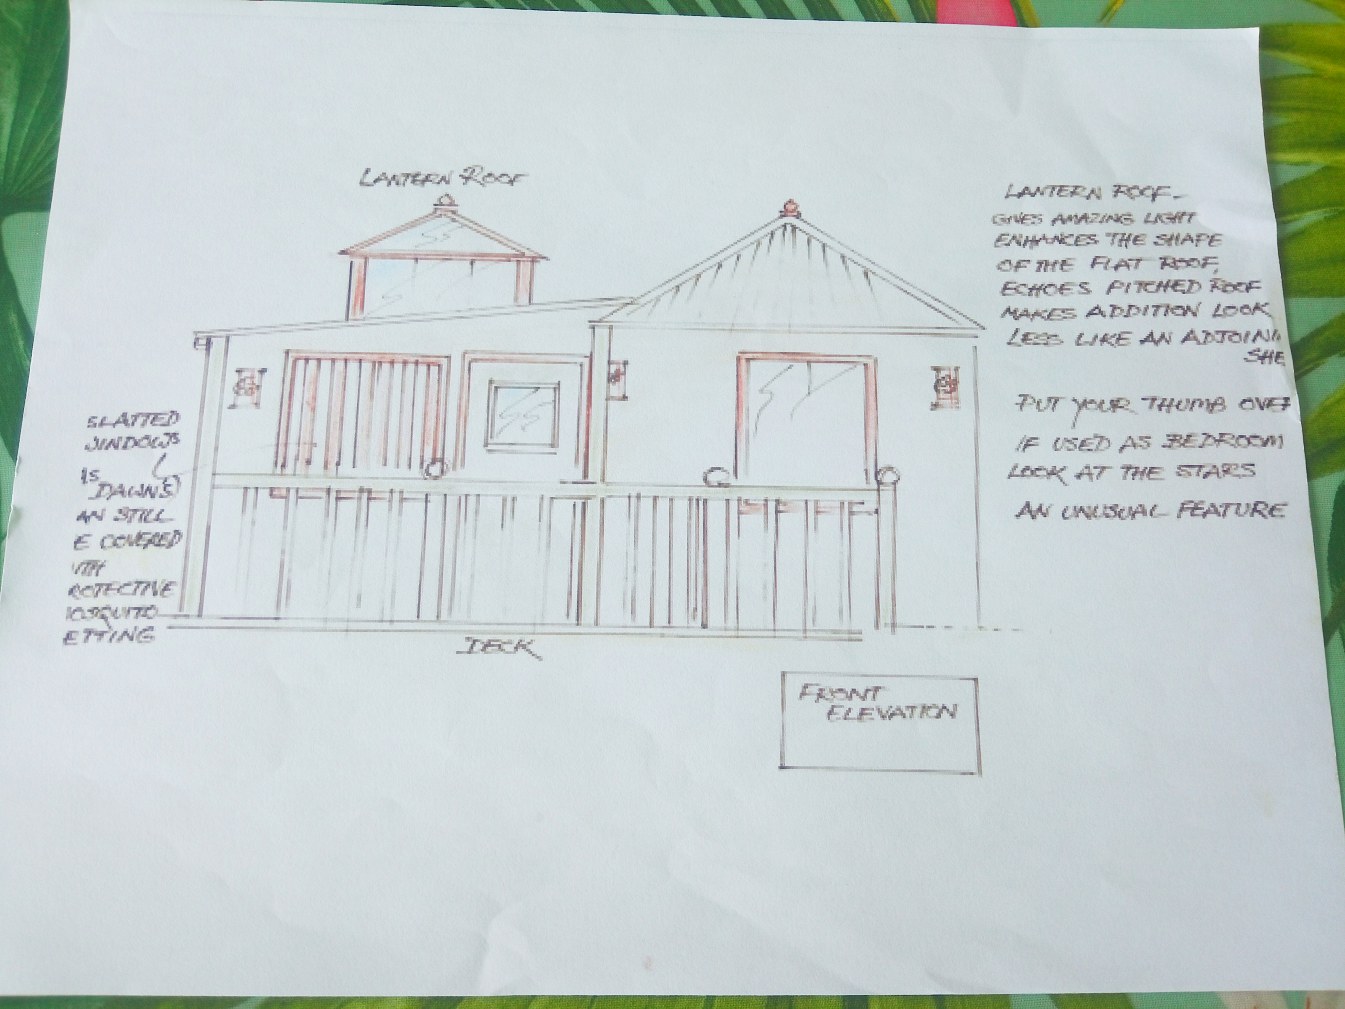 LANTERN ROOF
LANTERN ROOF-
GIVES AMAZING LIGHT
ENHANCES THE SHAPE
OF THE FLAT ROOF,
ECHOES PITCHED ROOF
MAKES ADDITION LOOK
LESS LIKE AN ADJOINI
SHE
PUT YOUR THUMB OVER
IF USED AS BEDROOM
LOOK AT THE STARS
AN UNUSUAL FEATURE
SLATTED
WINDOWS
IS
DAWNS)
AN STILL
E COVERED
ITH
ROTECTIVE
OSQUITO
ETTING
DECK
FRONT
ELEVATION